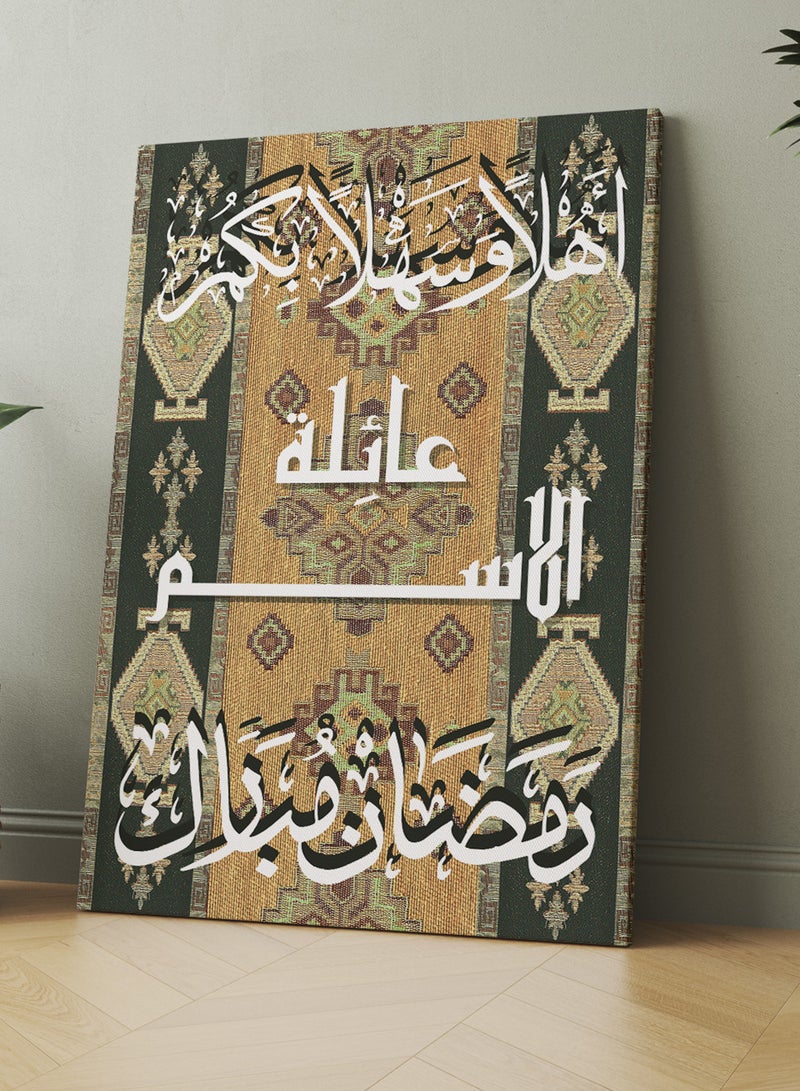 أَهْلاً وَسَهْلاً بِكُمْ
عائِلة
الاسم
رَمَضَان مُبَارَك